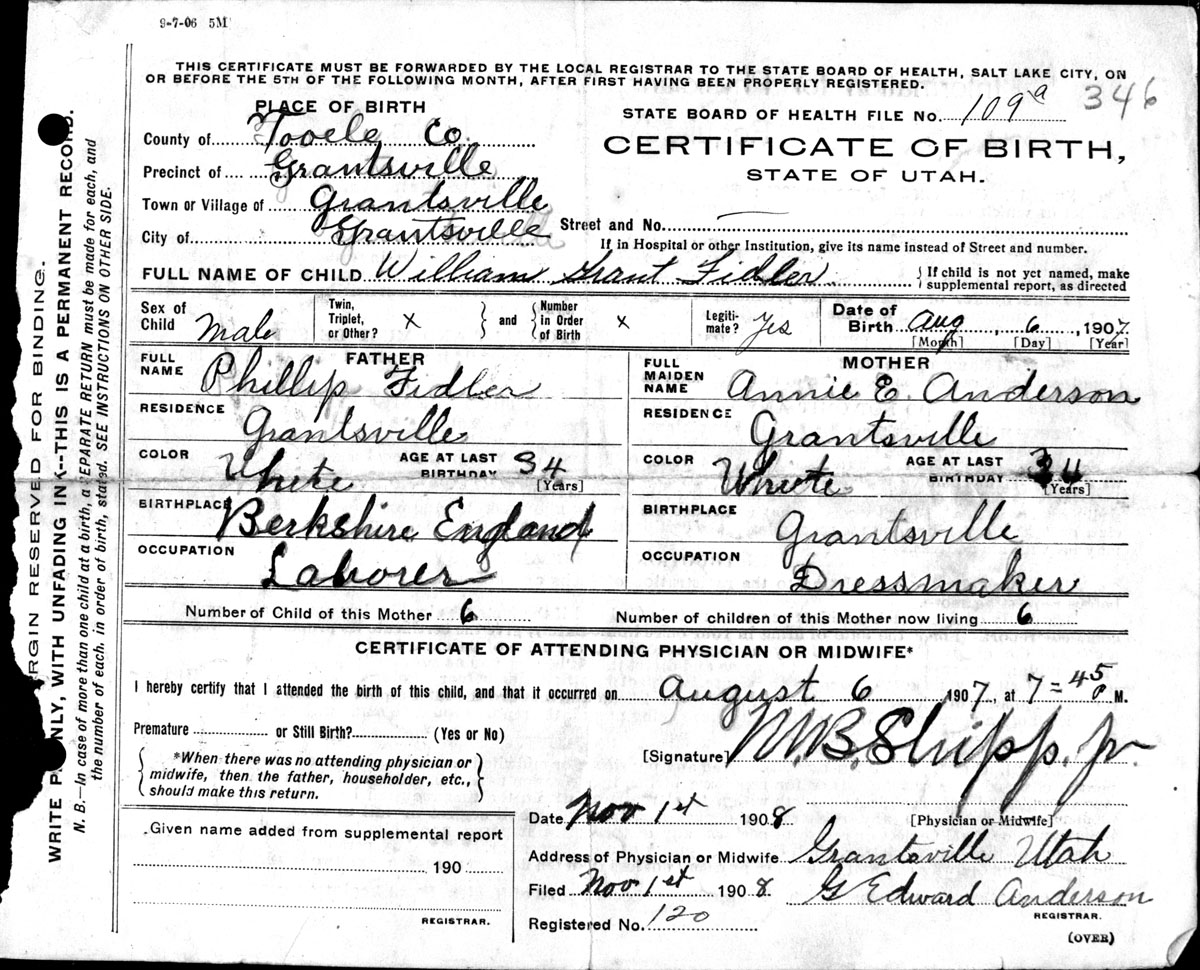 9-7-06 5M
THIS CERTIFICATE MUST BE FORWARDED BY THE LOCAL REGISTRAR TO THE STATE BOARD OF HEALTH, SALT LAKE CITY, ON
OR BEFORE THE 5TH OF THE FOLLOWING MONTH, AFTER FIRST HAVING BEEN PROPERLY REGISTERED.
346
PLACE OF BIRTH
STATE BOARD OF HEALTH FILE No. 109a
County of Tooele Co.
CERTIFICATE OF BIRTH,
Precinct of Grantsville
STATE OF UTAH.
Town or Village of Grantsville
City of Grantsville Street and No. —
If in Hospital or other Institution, give its name instead of Street and number.
FULL NAME OF CHILD William Grant Fidler { If child is not yet named, make supplemental report, as directed
Sex of Child Male Twin, Triplet, or Other? X } and { Number in Order of Birth X Legiti-mate? Yes Date of Birth Aug, 6, 1907
[Month] [Day] [Year]
FATHER MOTHER
FULL NAME Phillip Fidler FULL MAIDEN NAME Annie E. Anderson
RESIDENCE Grantsville RESIDENCE Grantsville
COLOR White AGE AT LAST BIRTHDAY 34 [Years] COLOR White AGE AT LAST BIRTHDAY 34 [Years]
BIRTHPLACE Berkshire England BIRTHPLACE Grantsville
OCCUPATION Laborer OCCUPATION Dressmaker
Number of Child of this Mother 6 Number of children of this Mother now living 6
CERTIFICATE OF ATTENDING PHYSICIAN OR MIDWIFE*
I hereby certify that I attended the birth of this child, and that it occurred on August 6, 1907, at 7=45 P. M.
Premature or Still Birth? (Yes or No)
[Signature] M.B. Shipp. Jr
{ *When there was no attending physician or
midwife, then the father, householder, etc.,
should make this return. }
Date Nov 1st 1908 [Physician or Midwife]
Given name added from supplemental report
190
REGISTRAR.
Address of Physician or Midwife Grantsville Utah
Filed Nov 1st 1908 G Edward Anderson
REGISTRAR.
Registered No. 120
(OVER)
MARGIN RESERVED FOR BINDING.
WRITE PLAINLY, WITH UNFADING INK--THIS IS A PERMANENT RECORD.
N. B.—In case of more than one child at a birth, a SEPARATE RETURN must be made for each, and
the number of each, in order of birth, stated. SEE INSTRUCTIONS ON OTHER SIDE.